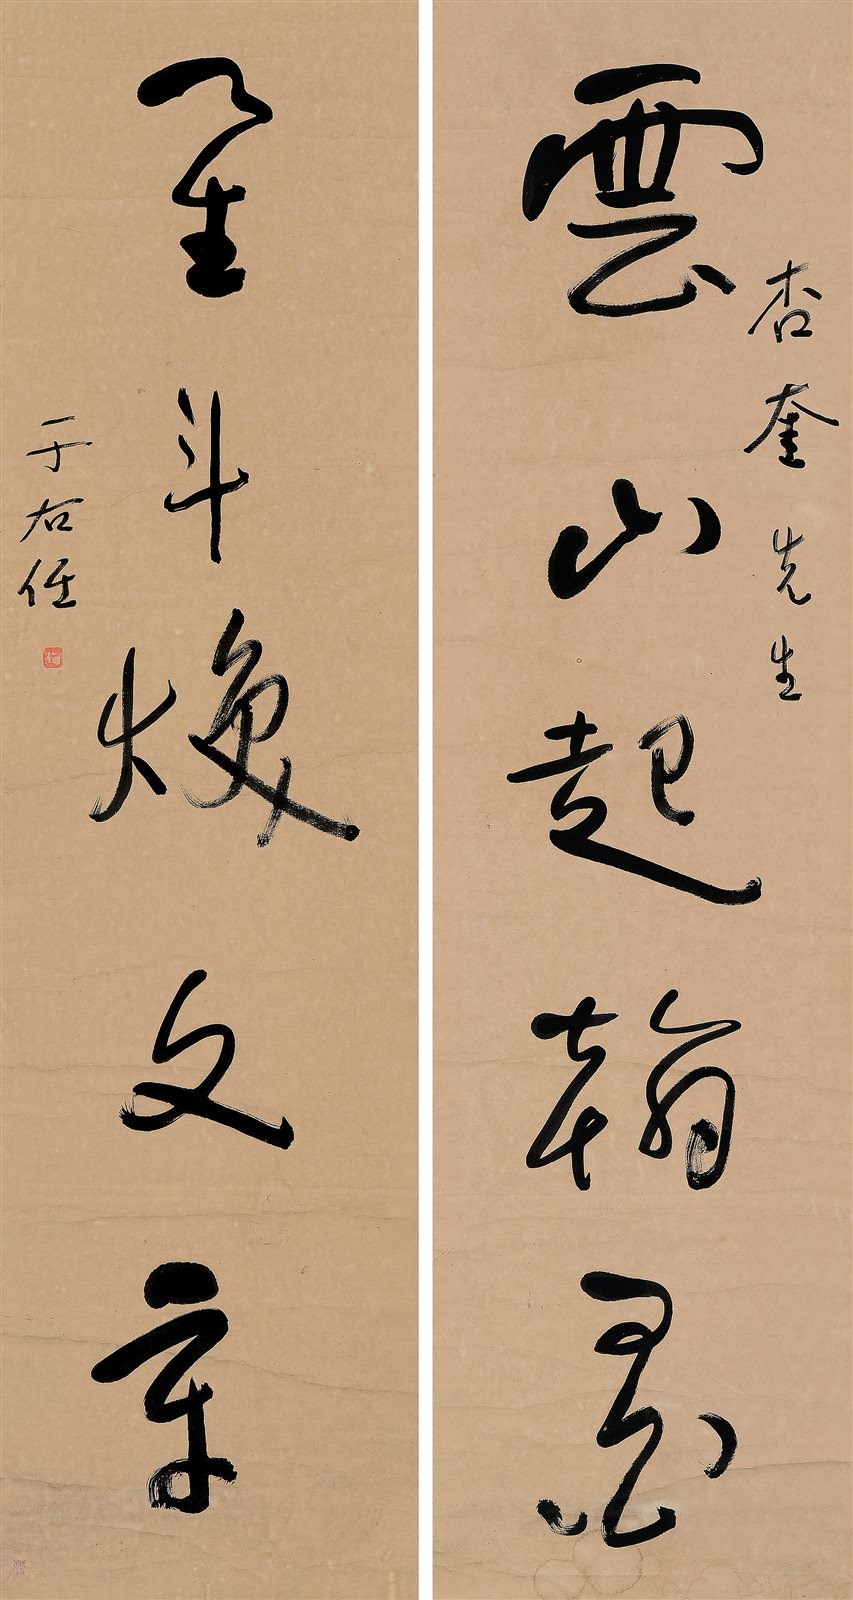 雲山起翰墨
杏奎先生
星斗煥文章
于右任